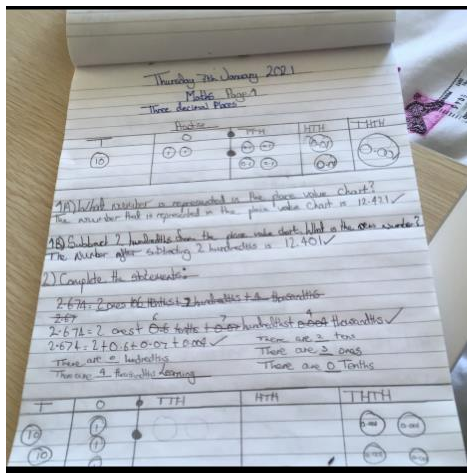 Thursday 7th January 2021
Maths Page 1
Three decimal Places
T O TTH HTH THTH
10
1A) What number is represented in the place value chart?
The number that is represented in the place value chart is 12.421
1B) Subtract 2 hundredths from the place value chart. What is the number?
The number after subtracting 2 hundredths is 12.401
2) Complete the statements:
2.674= 2 ones
2.67
2.674= 2 ones + 6 tenths + 7 hundredths + 4 thousandths
2.674= 2+0.6+0.07+0.004 There are 2 tens
There are 0 hundredths There are 3 ones
There are 4 thousandths There are 0 Tenths
T O TTH HTH THTH
10 1 0.001 0.001
10 1